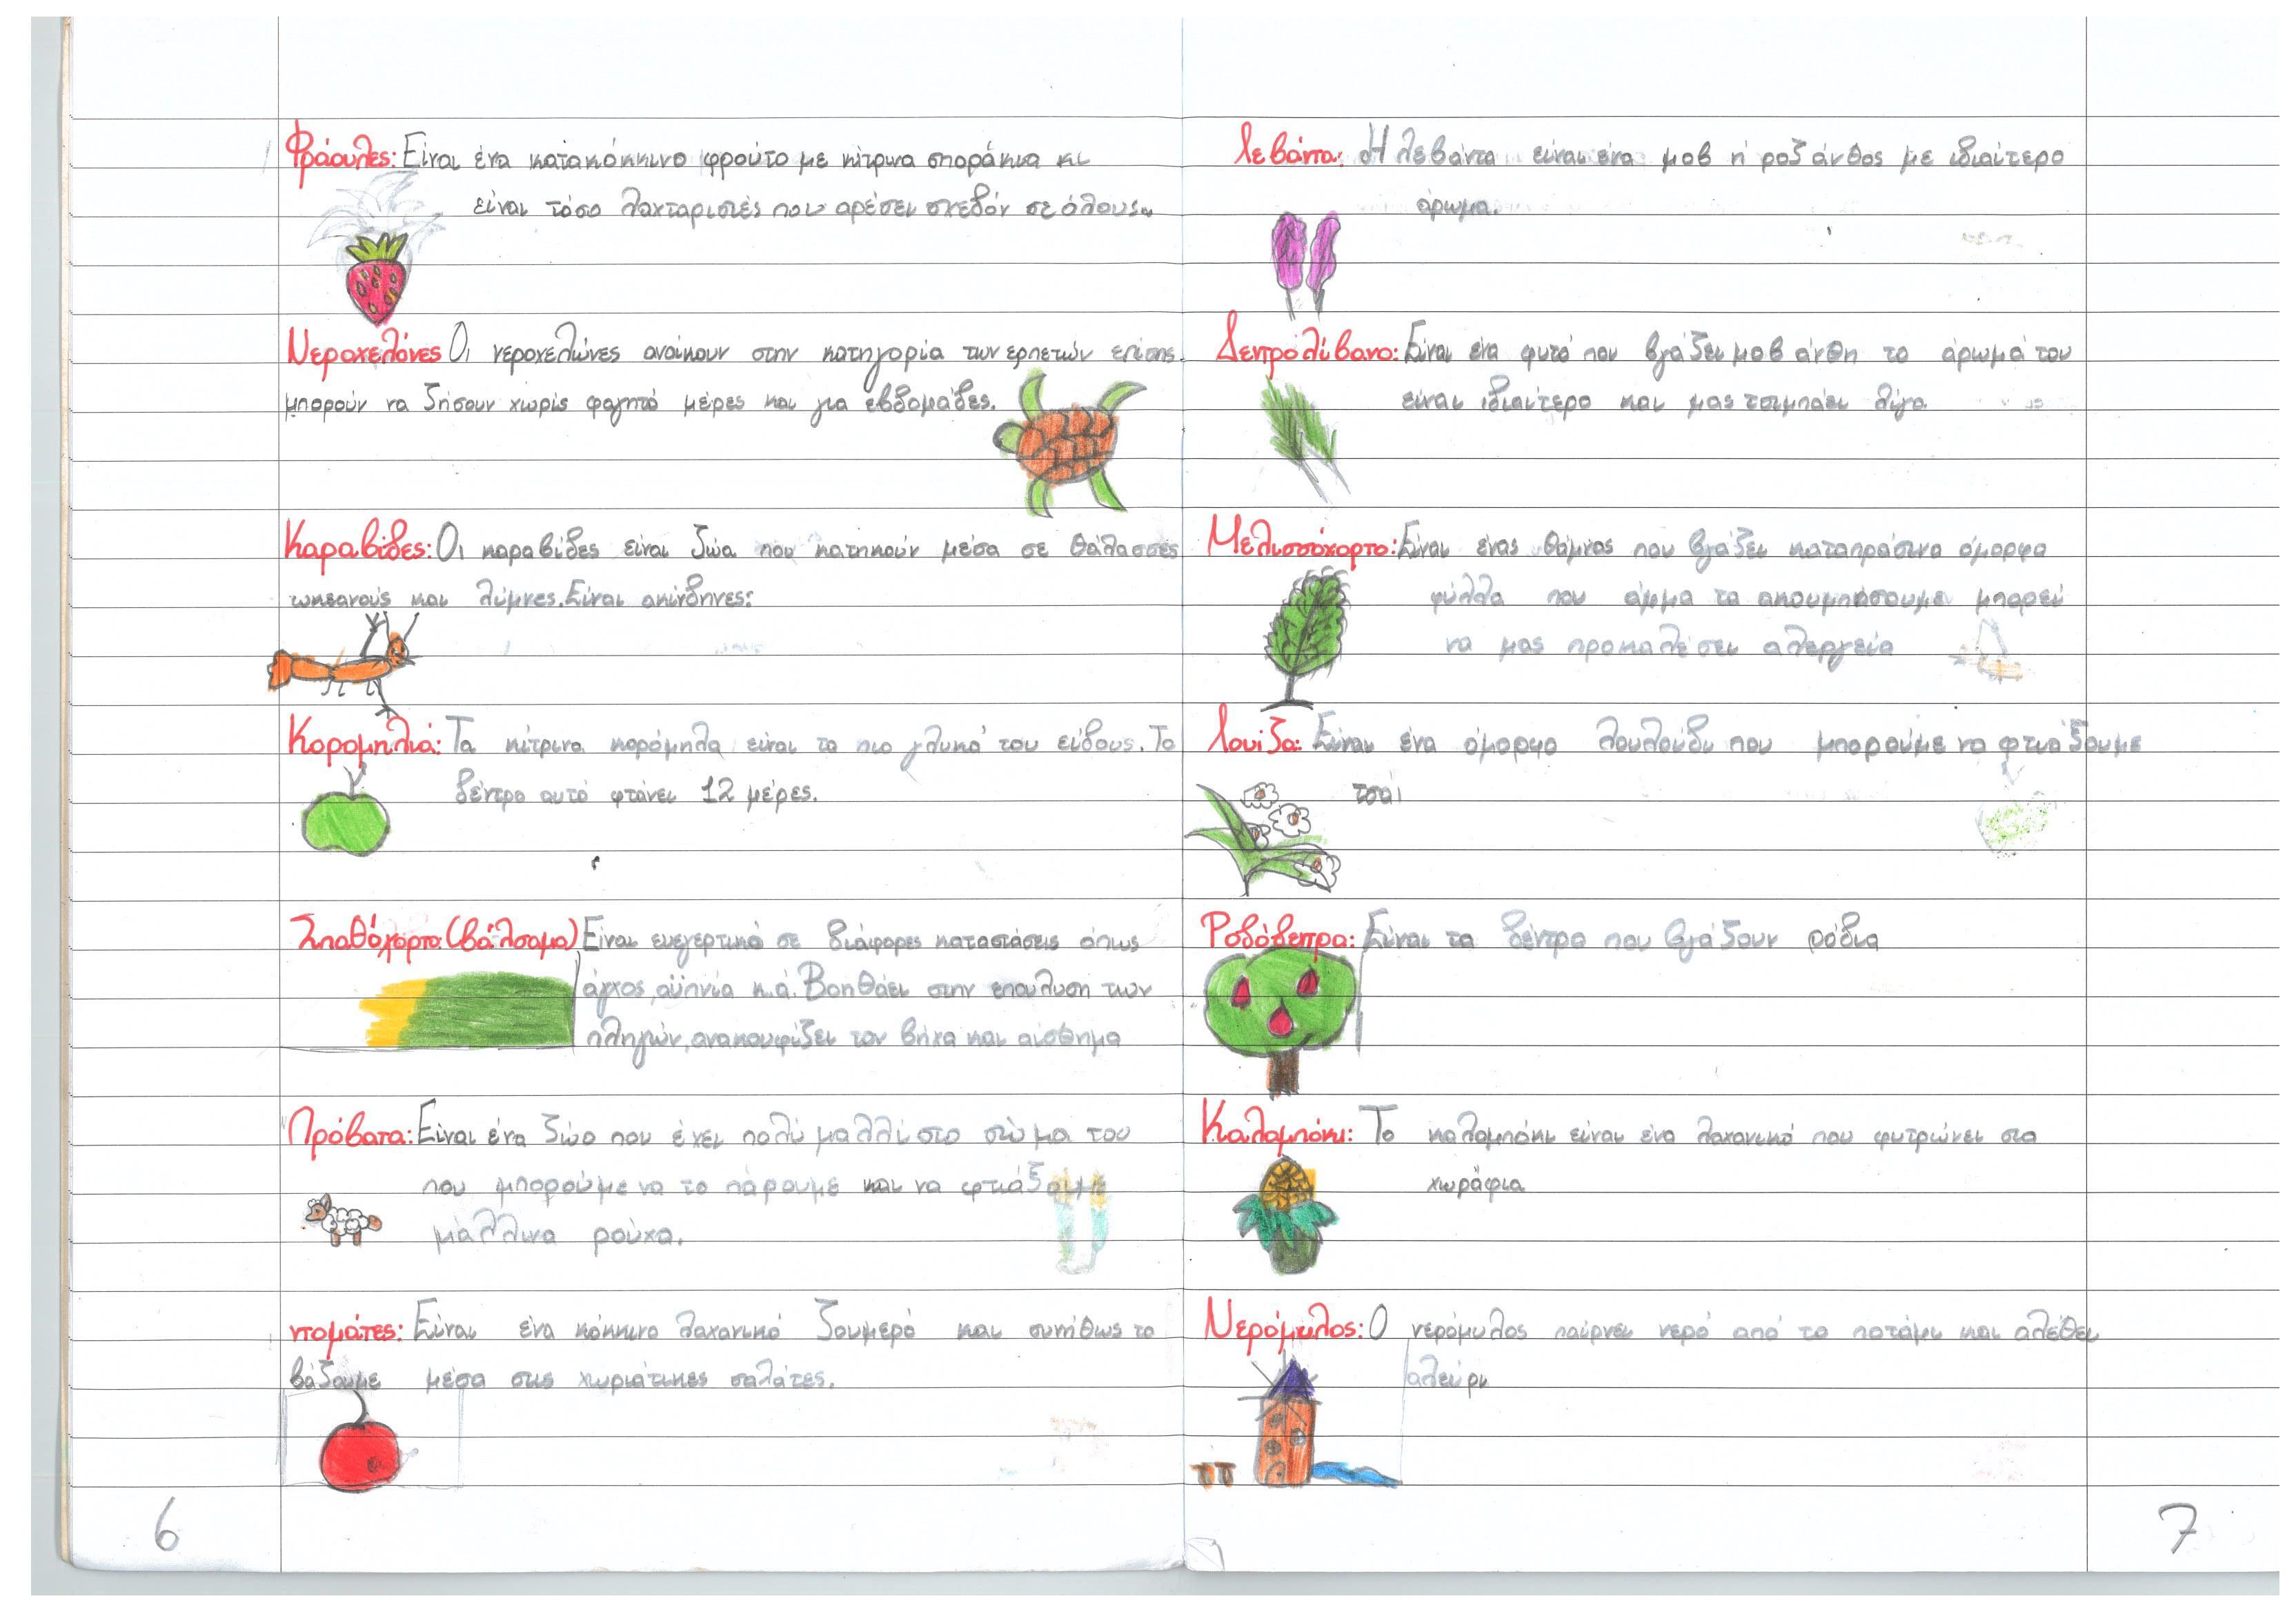 Φράουλες: Είναι ένα κατακόκκινο φρούτο με κίτρινα σποράκια κι
είναι τόσο λαχταριστές που αρέσει σχεδόν σε όλους..
Νεροχελόνες Οι νεροχελώνες ανοίκουν στην κατηγορία των ερπετών επίσης
μπορούν να ζήσουν χωρίς φαγητό μέρες και για εβδομάδες.
Καραβίδες: Οι καραβίδες είναι ζώα που κατηκούν μέσα σε θάλασσες
ωκεανούς και λύμνες. Είναι ακίνδηνες:
Κορομηλιά: Τα κίτρινα κορόμηλα είναι τα πιο γλυκά του είδους. Το
δέντρο αυτό φτάνει 12 μέρες.
Σπαθόχορτο: (βάλσαμο) Είναι ευεγερτικό σε διάφορες καταστάσεις όπως
άγχος, αϋπνία κ.ά. Βοηθάει στην επούλυση των
πληγών, ανακουφίζει τον βήχα και αίσθημα
Πρόβατα: Είναι ένα ζώο που έχει πολύ μαλλί στο σώμα του
που μπορούμε να το πάρουμε και να φτιάξουμε
μάλλινα ρούχα.
ντομάτες: Είναι ένα κόκκινο λαχανικό ζουμερό και συνήθως το
βάζουμε μέσα στις χωριάτικες σαλάτες.
6
Λεβάντα: Η λεβάντα είναι ένα μοβ ή ροζ άνθος με ιδιαίτερο
άρωμα.
Δεντρολίβανο: Είναι ένα φυτό που βγάζει μοβ άνθη το άρωμά του
είναι ιδιαίτερο και μας τσιμπάει λίγο
Μελισσόχορτο: Είναι ένας θάμνος που βγάζει καταπράσινα όμορφα
φύλλα που άμμα τα ακουμπήσουμε μπορεί
να μας προκαλέσει αλεργεία
Λουίζα: Είναι ένα όμορφο λουλούδι που μπορούμε να φτιάξουμε
τσάι
Ροδόδεπρα: Είναι τα δέντρα που βγάζουν ρόδια
Καλαμπόκι: Το καλαμπόκι είναι ένα λαχανικό που φυτρώνει στα
χωράφια
Νερόμυλος: Ο νερόμυλος παίρνει νερό από το ποτάμι και αλέθει
αλεύρι
7